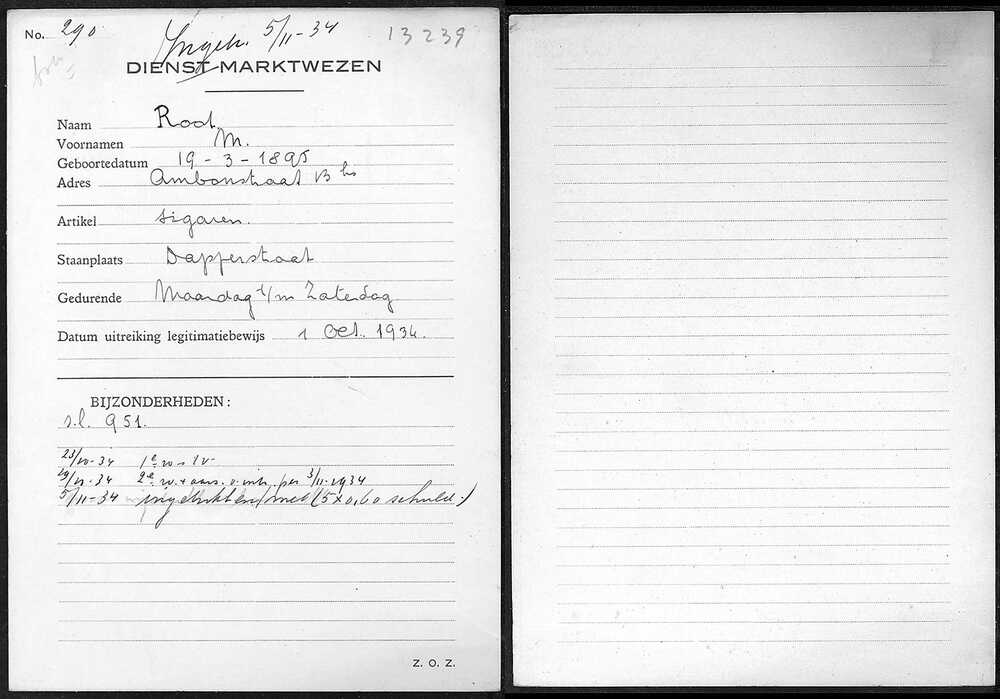 No. 290 Ingetr. 5/11-34 13239
DIENST MARKTWEZEN
Naam Root
Voornamen M.
Geboortedatum 19-3-1895
Adres Ambonstraat 13 hs
Artikel sigaren.
Staanplaats Dapperstraat
Gedurende Maandag t/m Zaterdag
Datum uitreiking legitimatiebewijs 1 Oct. 1934.
BIJZONDERHEDEN:
s.l. 951.
23/10-34 1e w
29/10-34 2e w. + aans. v. intr. per 3/11-1934
5/11-34 ingetrokken met (5x0,60 schuld.)
Z. O. Z.